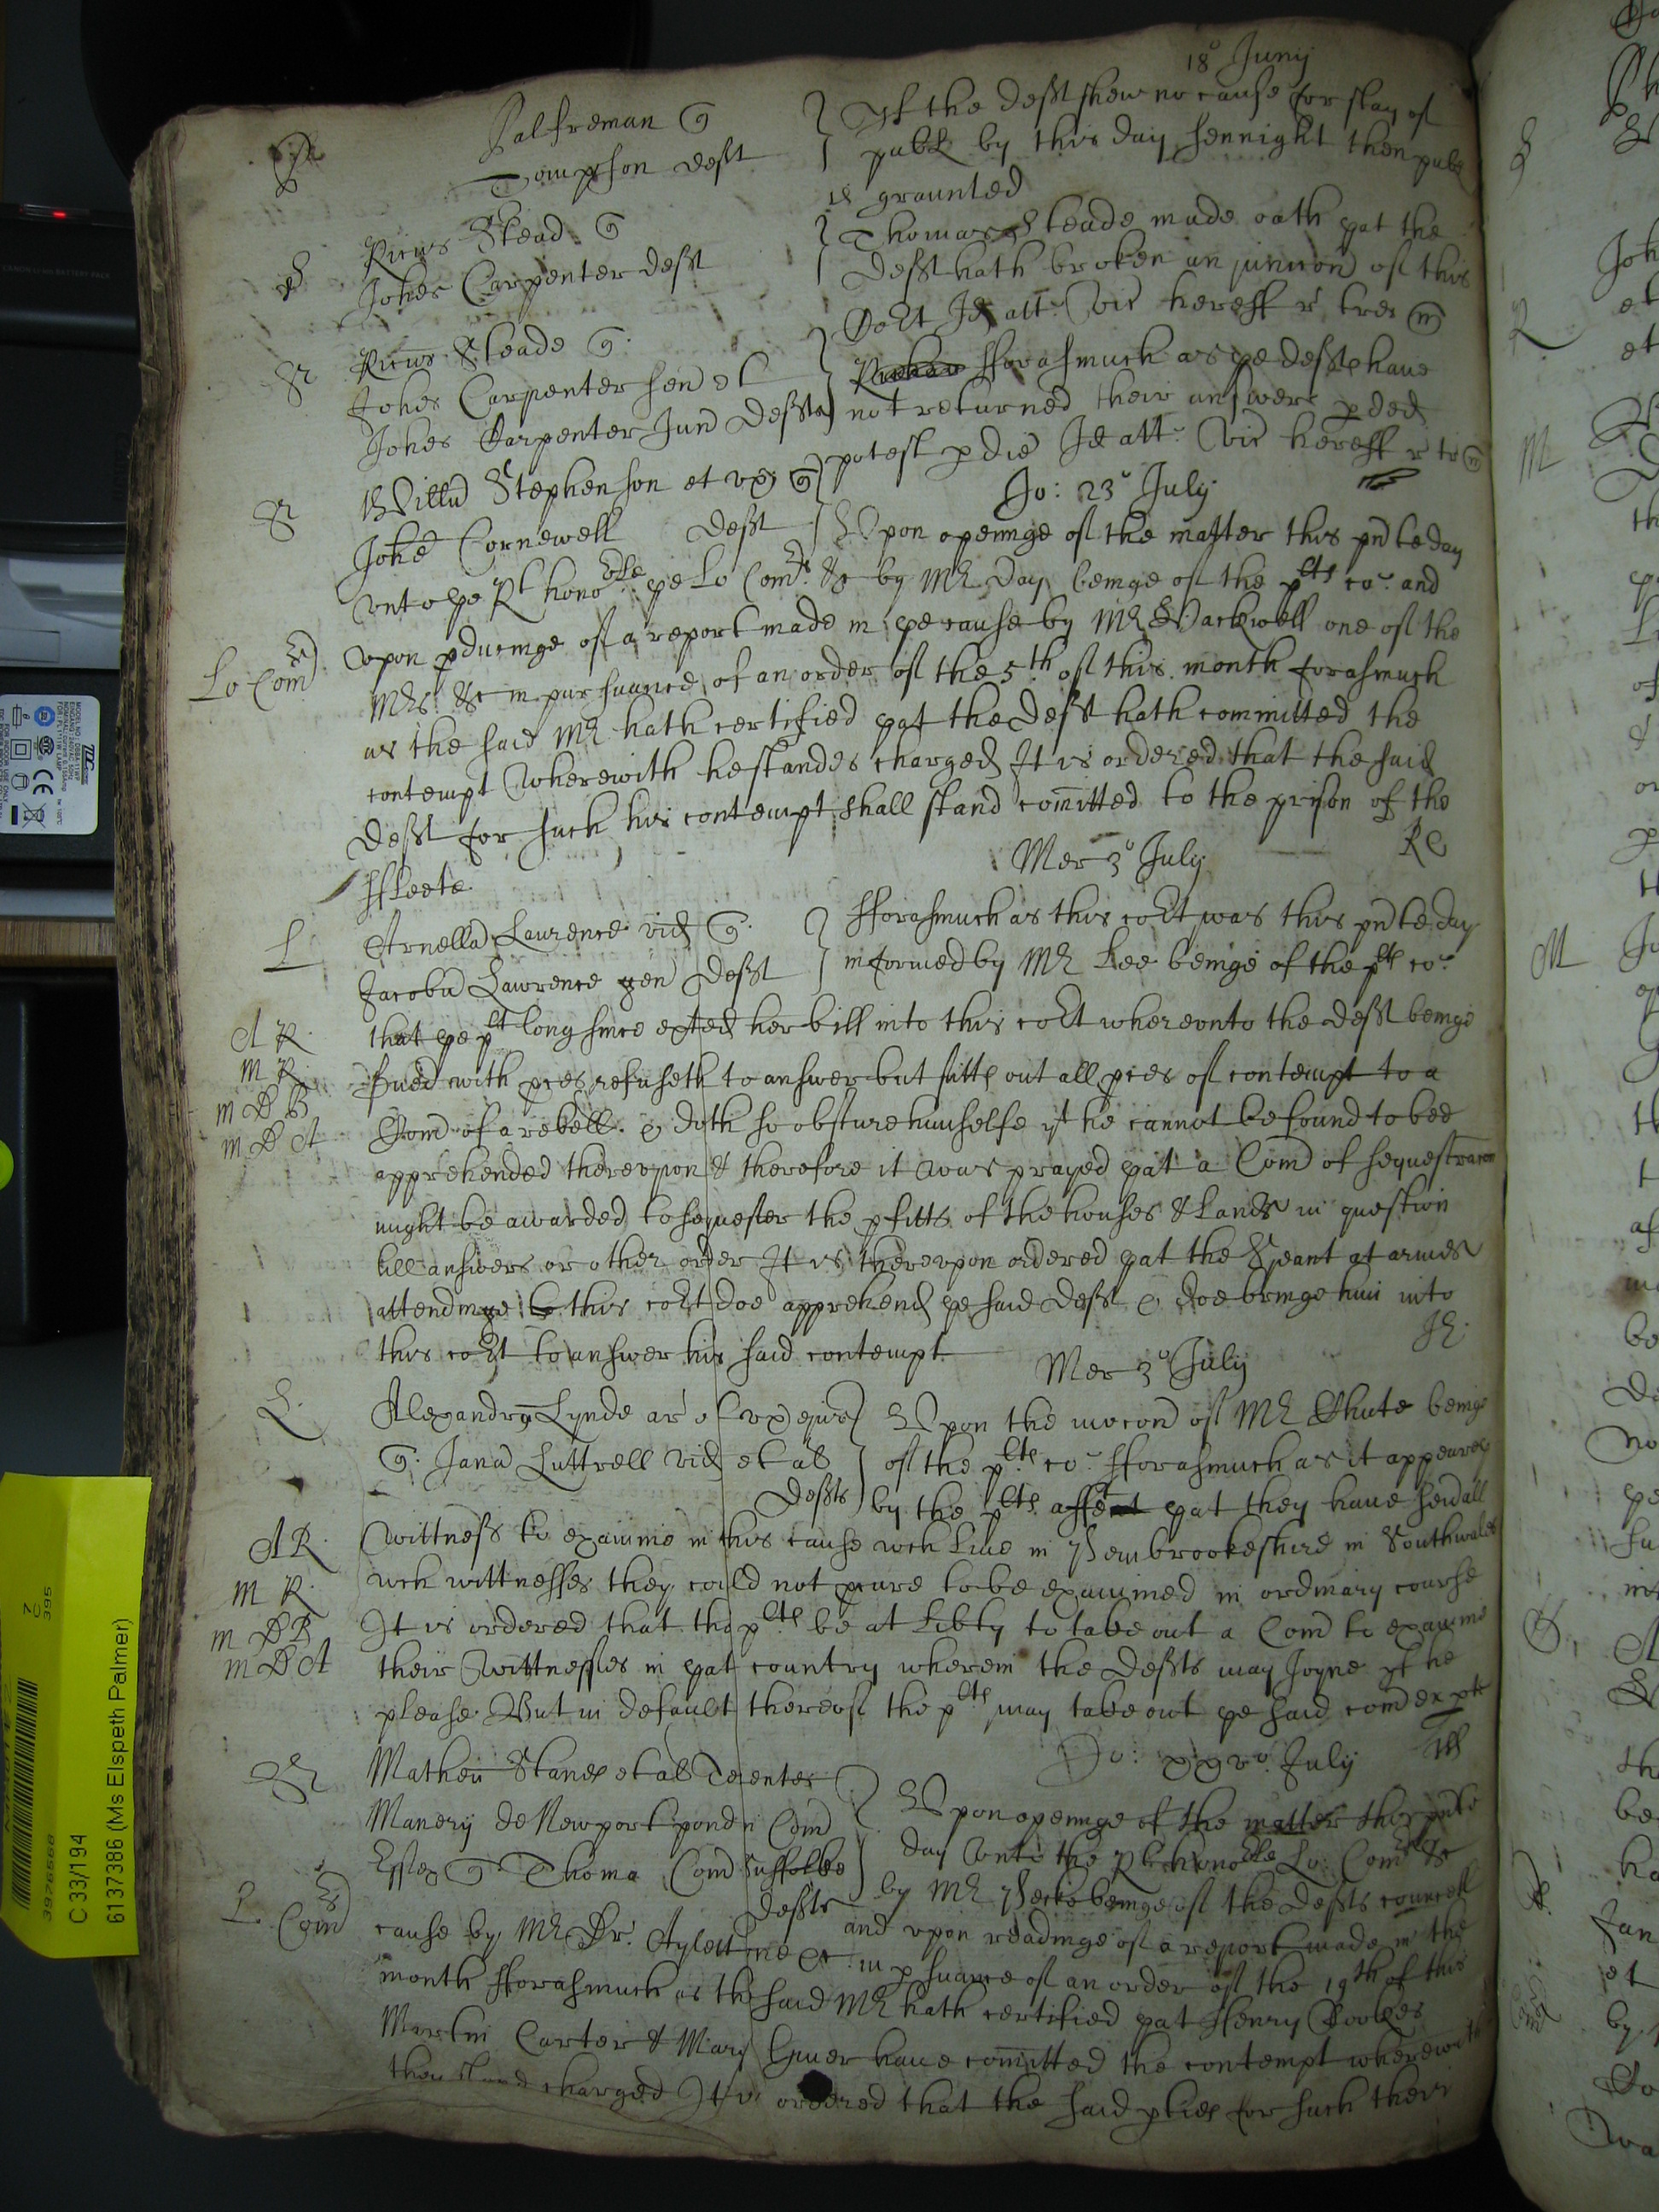 18° Junij
P Palfreman q
Tompson deft
If the deft shew no cause for stay of
publ by this day sennight then publ
is graunted
S Ricus Stead q
Johes Carpenter deft
Thomas Steade made oath yat the
deft hath broken an juncion of this
Court Id att vic hereff r tres m
S Ricus Steade q
Johes Carpenter sen et
Johes Carpenter Jun defts
fforasmuch as ye defts have
not returned their answere p ded
potest p die Id att vic hereff r tr m
Jo: 23° July
S Willm Stephenson et ux q
Johem Cornewell deft
Upon openinge of the matter this pnte day
unto ye Rt honoble ye Lo Comrs &c by Mr Day beinge of the plts co and
Lo Comrs
upon pduceinge of a report made in ye cause by Mr Backwell one of the
Mrs &c in pursuance of an order of the 5th of this month forasmuch
as the said Mr hath certified yat the deft hath committed the
contempt wherewith he standes charged It is ordered that the said
deft for such his contempt shall stand comitted to the prison of the
ffleete
RC
Mer 3° July
L Arnella Laurence vid q
Jacobu Lawrence gen deft
fforasmuch as this cort was this pnte day
informed by Mr Lee beinge of the plts co
A R
m R
m D B
m D A
that ye plt long since exted her bill into this cort whereonto the deft beinge
sued with pces refuseth to answer but sitts out all pces of contempt to a
Com of a rebell & doth so obscure himselfe yt he cannot be found to bee
apprehended thereupon & therefore it was prayed yat a Com of sequestracon
might be awarded to sequester the pfitts of the houses & Lands in question
till answere or other order It is thereupon ordered yat the Sjeant at armes
attendinge this cort doe apprehend ye said deft & doe bringe him into
this cort to answer his said contempt
Mer 3° July
L Alexandrum Lynde ar et ux eius
q Jana Luttrell vid et al
defts
Upon the mocon of Mr Chute beinge
of the plts co fforasmuch as it appeares
by the plts afft yat they have sevall
A R
m R
m D B
m D A
wittness to examine in this cause wch live in Pembrookeshire in Southwales
wch wittnesses they could not pcure to be examined in ordinary course
It is ordered that the plts be at Libty to take out a Com to examine
their wittnesses in yat country wherein the defts may joyne yf he
please But in default thereof the plts may take out ye said com ex pte
Jo: xxv° July
S Matheu Stanes et al Tenentes
Manerij de Newport pond in Com
Essex q Thoma Com Suffolke
defts
Upon openinge of the matter this pnte
day unto the Rt honoble Lo: Comrs &c
by Mr Pecke beinge of the defts councell
and upon readinge of a report made in the
L Comrs
cause by Mr Dr Aylett one &c in psuance of an order of the 19th of this
month fforasmuch as the said Mr hath certified yat Henry
Martin Carter & Mary have comitted the contempt wherewith
they stand charged It is ordered that the said pties for such their
C 33/194
6137386 (Ms Elspeth Palmer)